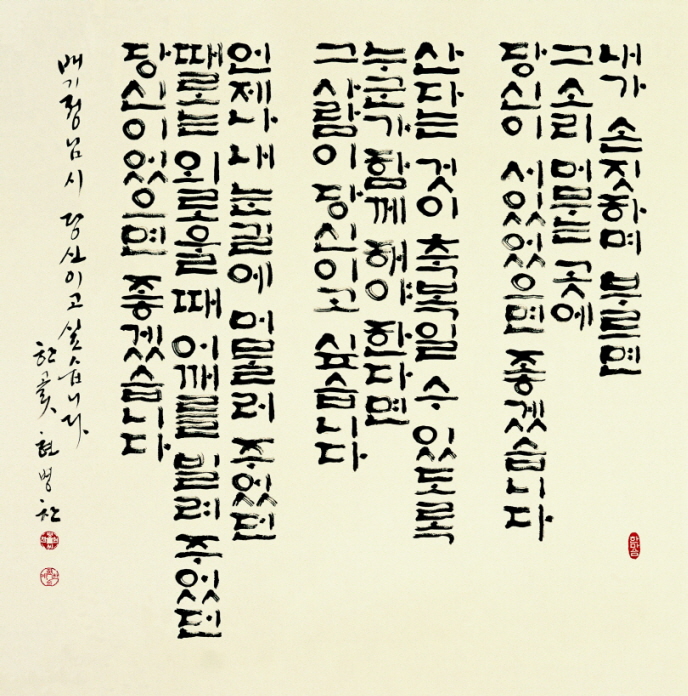 내가 손짓하며 부르면
그 소리 머무는 곳에
당신이 서있었으면 좋겠습니다
산다는 것이 축복일 수 있도록
누군가 함께 해야 한다면
그 사람이 당신이고 싶습니다
언제나 내 눈길에 머물러 주었던
때로는 외로울 때 어깨를 빌려 주었던
당신이 있으면 좋겠습니다
배기정님 시 당신이고 싶습니다
한곬 현병찬